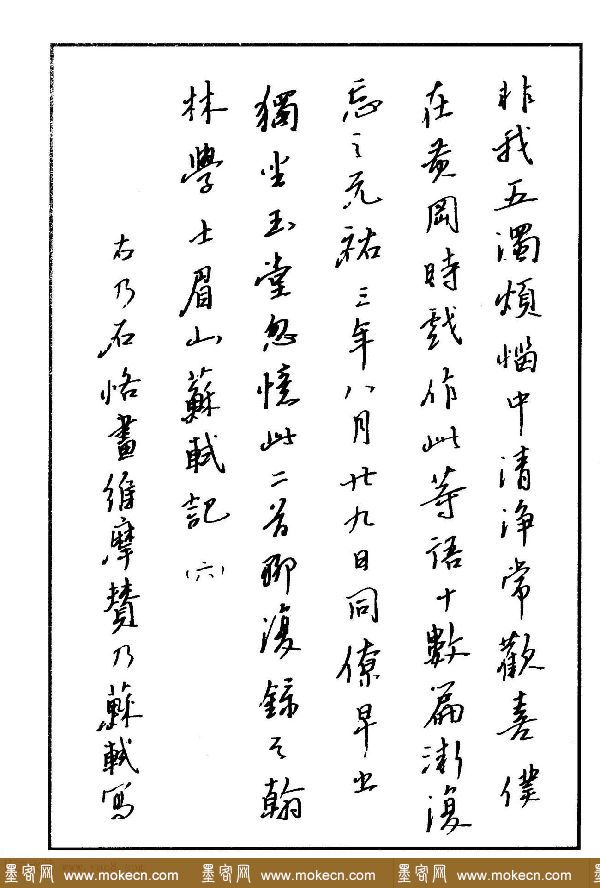 非我五濁煩惱中清淨常歡喜僕
在黃岡時戲作此等語十數篇漸復
忘之元祐三年八月廿九日同僚早出
獨坐玉堂忽憶此二首聊復錄之翰
林學士眉山蘇軾記（六）
右乃石恪畫維摩贊乃蘇軾寫
墨客网 www.mokecn.com 墨客网 www.mokecn.com 墨客网 www.mokecn.com